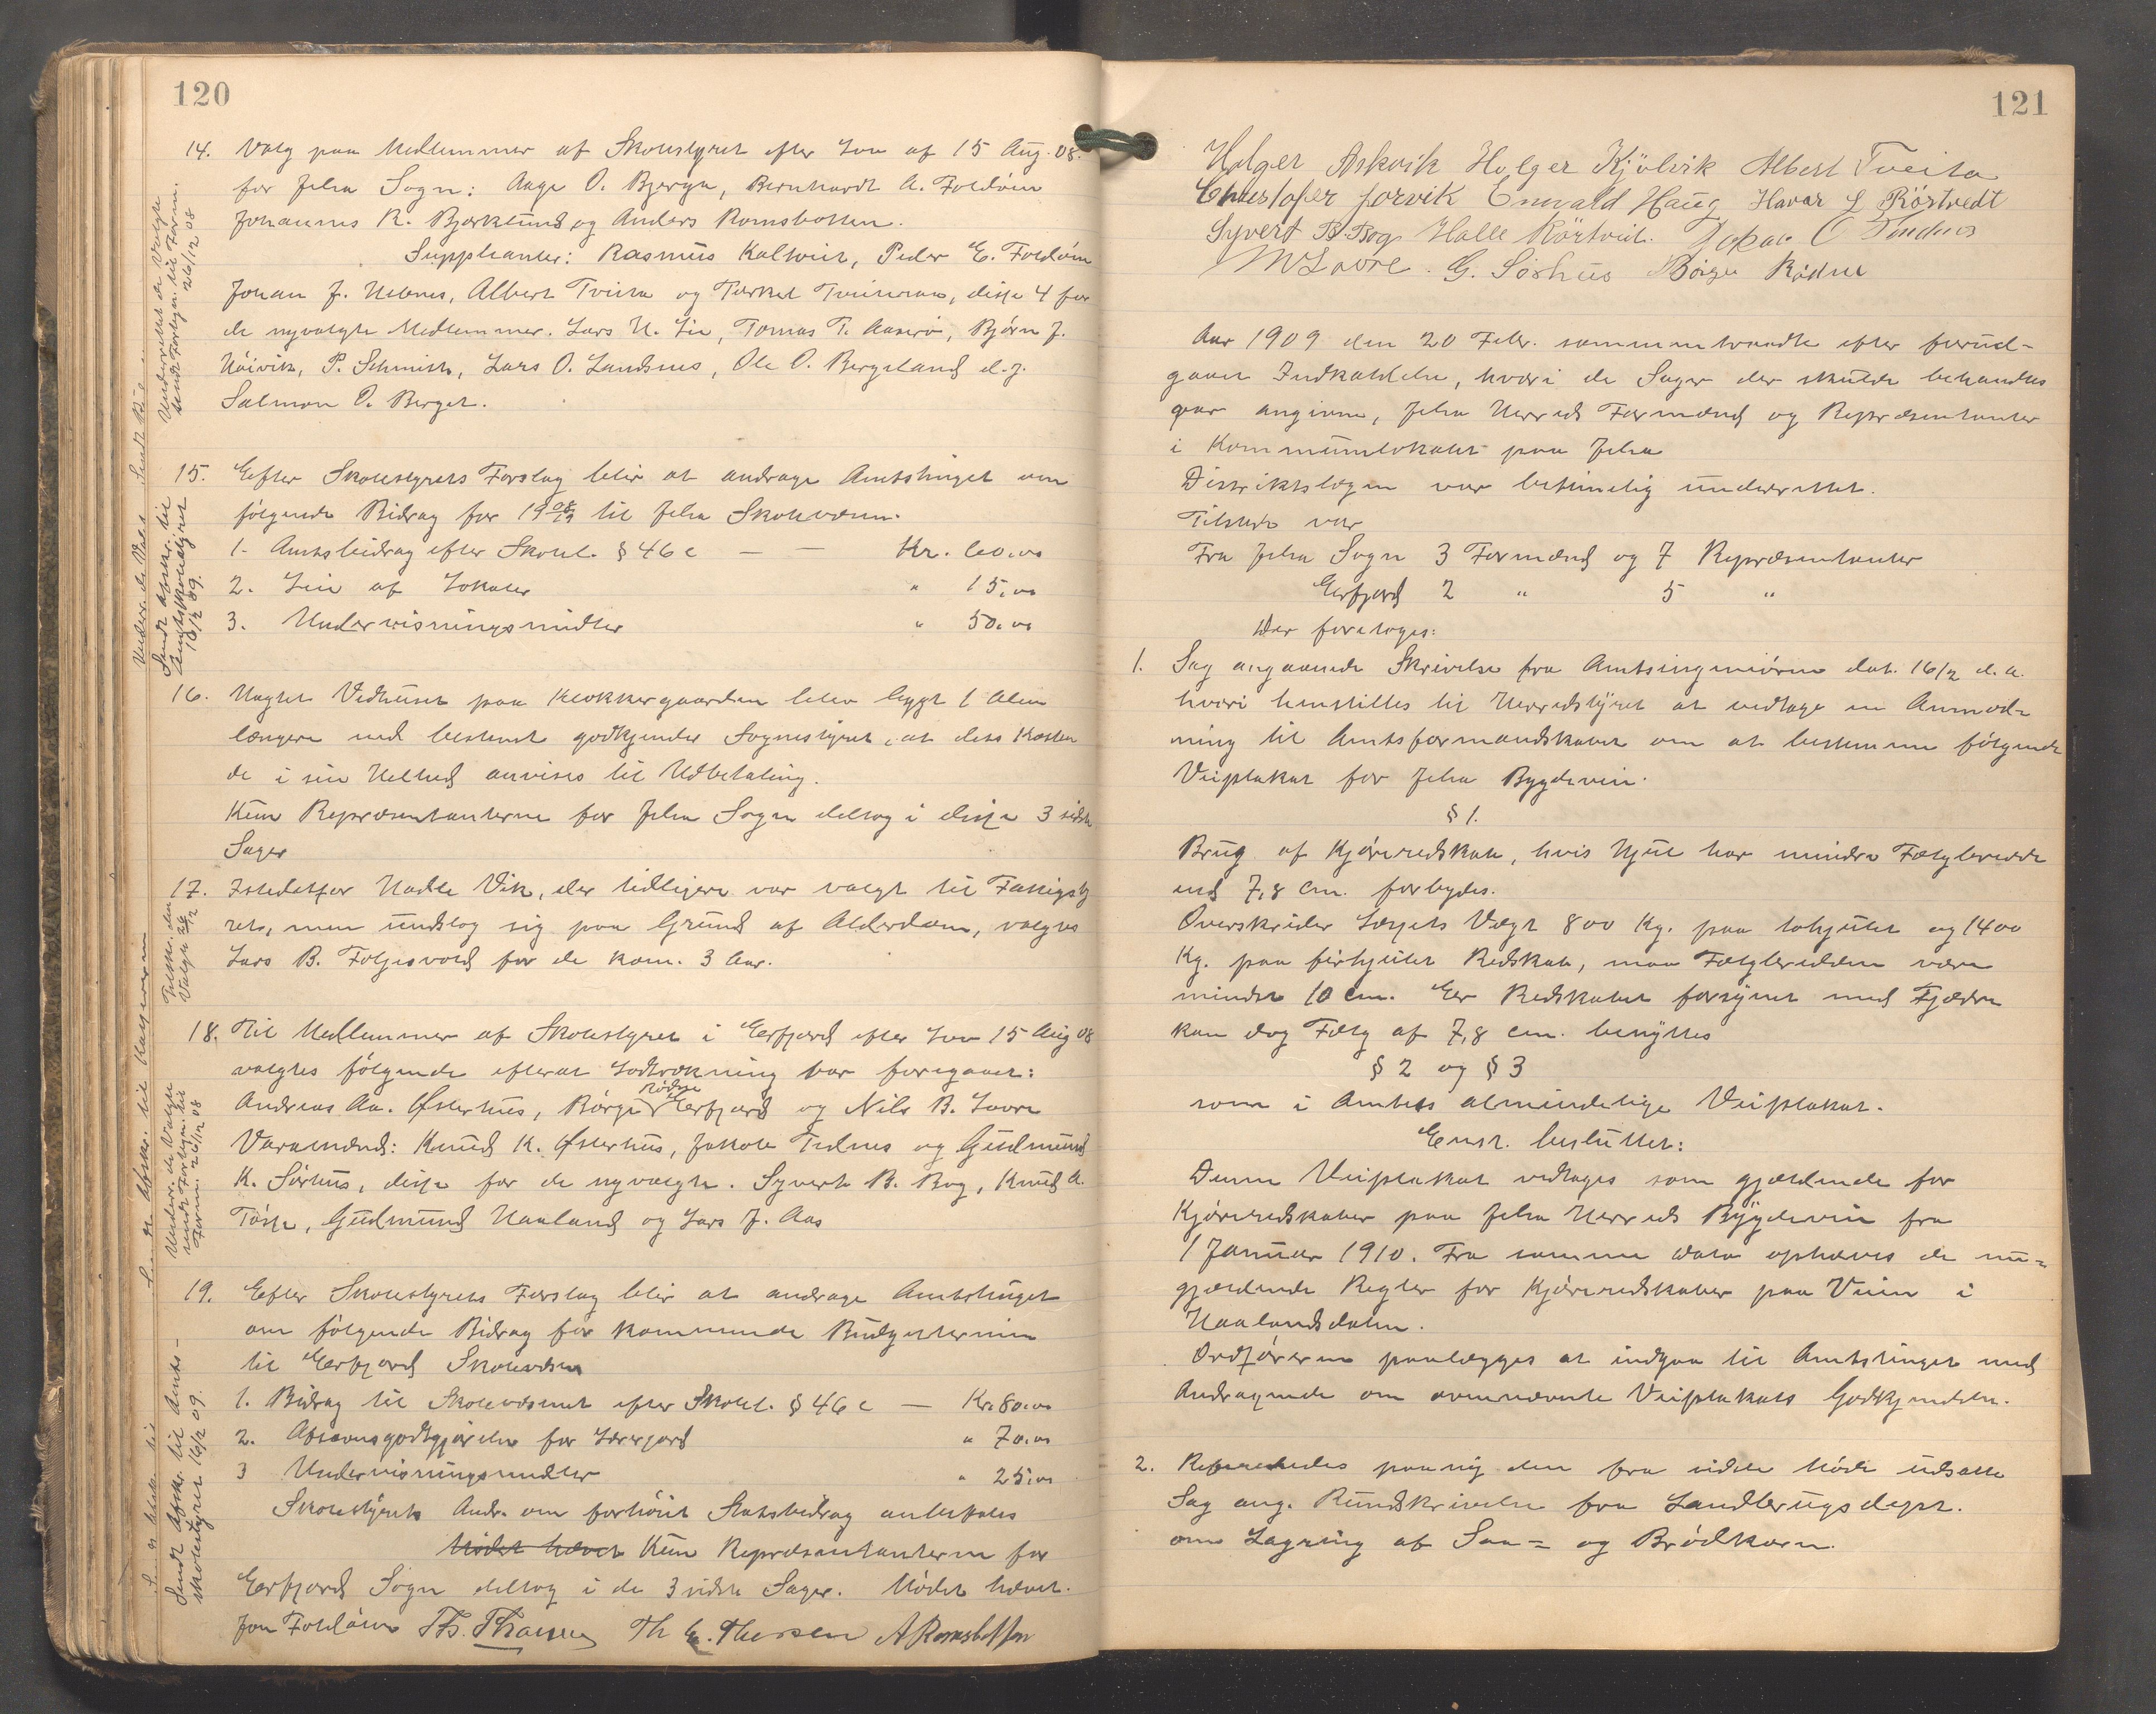 120
14. Valg paa Medlemmer af Skolestyret efter Lov af 15 Aug. 08.
for Jelsa Sogn: Aage O. Bjerga, Bernhardt A. Foldøen
Johannes R. Bjørklund og Anders Romsbotten.
Suppleanter: Rasmus Kaltveit, Peder E. Foldøen
Johan J. Nesnes, Albert Tveita og Torkel, disse 4 for
de nyvalgte Medlemmer. Lars N. Lie, Tomas T. Aaserø, Bjørn J.
Nøivik, P. Schmidt, Lars O. Landsnes, Ole O. Bergeland d.y.
Salmon O. Berget.
Underrettet de Valgte
sendt Fortegn. til Form.
26/12 08
15. Efter Skolestyrets Forslag blir at andrage Amtstinget om
følgende Bidrag for 19 til Jelsa Skolevæsen.
1. Amtsbidrag efter Skolel. § 46 c — — Kr.
2. Leie af Lokaler " 15.00
3. Undervisningsmidler " 50.00
Sendt Afskr. til
Amtsskolestyret
16/2 09.
16. Uagtet Vedhuset paa Klokkergaarden blev bygt 1 Alen
længere end bestemt godkjender Sognestyret, at dets Kosten
de i sin Helhed anvises til Udbetaling.
Kun Repræsentanterne for Jelsa Sogn deltog i disse 3 sidste
Sager
17. Istedetfor Nadle Vik, der tidligere var valgt til Fattigsty
ret, men undslog sig paa Grund af Alderdom, valgtes
Lars B. Foljesvold for de kom. 3 Aar.
18. Til Medlemmer af Skolestyret i Erfjord efter Lov 15 Aug 08
valgtes følgende efterat Lodtrækning var foregaaet:
Rødne
Andreas Aa. Østerhus, Børge Erfjord og Nils B. Lovre
Varamænd: Knud K. Østerhus, Jakob Tednes og Gudmund
K. Sørhus, disse for de nyvalgte. Syvert B. Bog, Knud A.
Tøsse, Gudmund Haaland og Lars J. Aas
Underr. de Valgte
sendt Fortegn. til
Form. 26/12 08
19. Efter Skolestyrets Forslag blir at andrage Amtstinget
om følgende Bidrag for kommende Budgettermin
til Erfjord Skolevæsen
1. Bidrag til Skolevæsenet efter Skolel. § 46 c — Kr. 80.00
2. Afsavnsgodtgjørelse for Lærerjord " 70.00
3 Undervisningsmidler " 25.00
Skolestyrets Andr. om forhøiet Statsbidrag anbefales
Mødet hævet Kun Repræsentanterne for
Erfjord Sogn deltog i de 3 sidste Sager. Mødet hævet.
Sendt Afskr. til Amts-
skolestyret 16/2 09.
Jon Foldøen Th. E. Thorsen A Romsbotten
121
Holger Askvik Holger Kjølvik Albert Tveita
Enevald Haug Havar L Rörtvedt
Syvert B. Bog Halle Rörtveit. Jakob O Tednes
N Lovre. G. Sørhus Børge Rødne
Aar 1909 den 20 Febr. sammentraadte efter forud-
gaaet Indkaldelse, hvori de Sager der skulde behandles
var angivne, Jelsa Herreds Formænd og Repræsentanter
i Kommunelokalet paa Jelsa
Distriktslægen var betimelig underrettet.
Tilstede var
Fra Jelsa Sogn 3 Formænd og 7 Repræsentanter
Erfjord 2 " 5 "
Der foretoges:
1. Sag angaaende Skrivelse fra Amtsingeniøren dat. 16/2 d.a.
hvori henstilles til Herredstyret at vedtage en Anmod-
ning til Amtsformandskabet om at bestemme følgende
Veiplakat for Jelsa Bygdevein.
§ 1.
Brug af Kjøreredskab, hvis Hjul har mindre Fælgbredde
end 7,8 cm. forbydes.
Overskrider Læssets Vægt 800 Kg. paa tohjulet og 1400
Kg. paa firhjulet Redskab, maa Fælgbredden være
mindst 10 cm. Er Redskabet forsynet med Fjædre
kan dog Fælg af 7,8 cm. benyttes
§ 2 og § 3
som i Amtets almindelige Veiplakat.
Enst. besluttet:
Denne Veiplakat vedtages som gjældende for
Kjøreredskaber paa Jelsa Herreds Bygdeveie fra
1 Januar 1910. Fra samme Dato ophæves de nu-
gjældende Regler for Kjøreredskaber paa Veien i
Haalandsdalen.
Ordføreren paalægges at indgaa til Amtstinget med
Andragende om ovennævnte Veiplakats Godkjendelse.
2. Refereredes paany den fra sidste Møde udsatte
Sag ang. Rundskrivelse fra Landbrugsdept.
om Lagring af Saa- og Brødkorn.